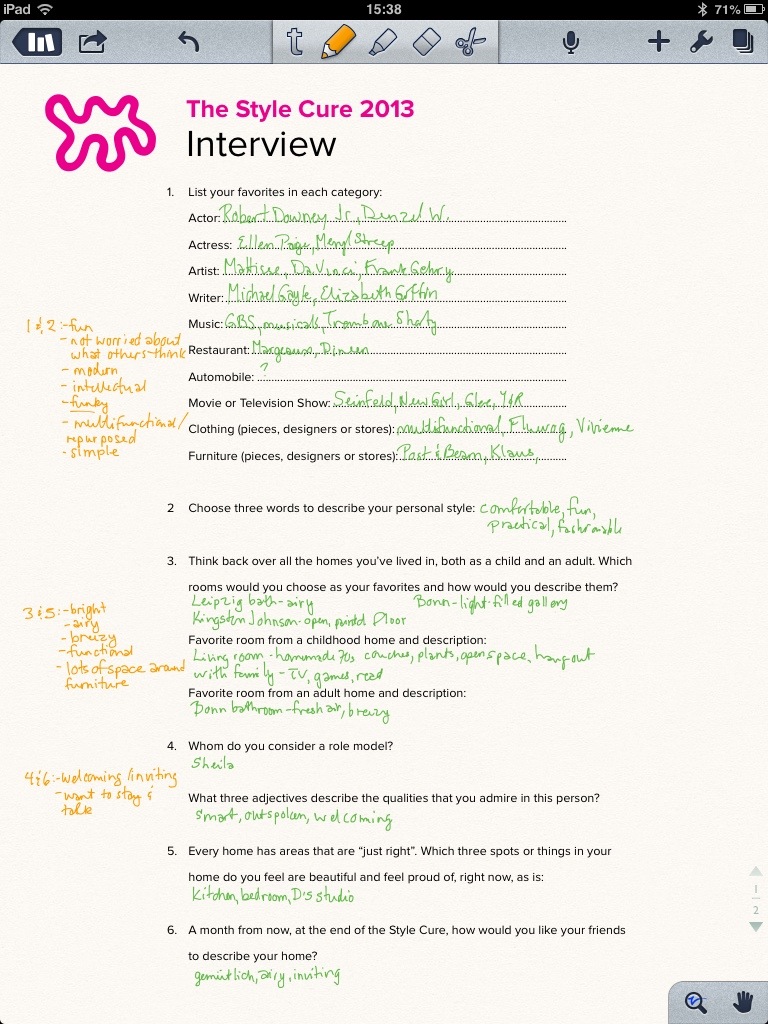 iPad 15:38 71%
t
The Style Cure 2013
Interview
1. List your favorites in each category:
Actor: Robert Downey Jr., Denzel W.
Actress: Ellen Page, Meryl Streep
Artist: Mattisse, DaVinci, Frank Gehry
Writer: Michael Gayle, Elizabeth
1 & 2: - fun
Music: GBS, musicals, Trombone Shorty
- not worried about
what others think
Restaurant: Dinsen
- modern
Automobile: ?
- intellectual
- funky
Movie or Television Show: Seinfeld, New Girl, Glee, Y&R
- multifunctional/
Clothing (pieces, designers or stores): multifunctional, Fluevog, Vivienne
repurposed
- simple
Furniture (pieces, designers or stores): Post & Beam, Klaus,
2 Choose three words to describe your personal style: comfortable, fun,
practical, fashionable
3. Think back over all the homes you've lived in, both as a child and an adult. Which
rooms would you choose as your favorites and how would you describe them?
Leipzig bath - airy Bonn - light-filled gallery
3 & 5: - bright
Kingston Johnson - open, painted floor
- airy
- breezy
Favorite room from a childhood home and description:
- functional
Living room - homemade 70s couches, plants, open space, hang out
- lots of space around
with family - TV, games, read
furniture
Favorite room from an adult home and description:
Bonn bathroom - fresh air, breezy
4. Whom do you consider a role model?
Sheila
4 & 6: - welcoming/inviting
- want to stay &
talk
What three adjectives describe the qualities that you admire in this person?
smart, outspoken, welcoming
5. Every home has areas that are “just right”. Which three spots or things in your
home do you feel are beautiful and feel proud of, right now, as is:
Kitchen, bedroom, D's studio
1
2
6. A month from now, at the end of the Style Cure, how would you like your friends
to describe your home?
gemütlich, airy, inviting